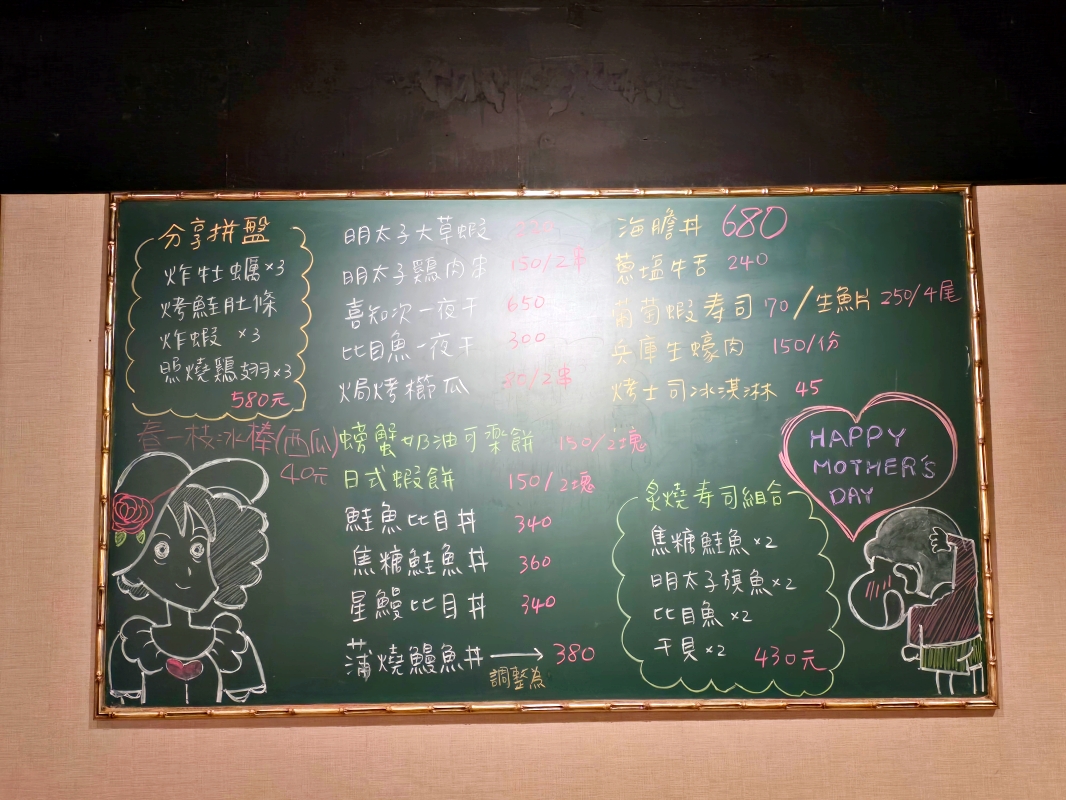 分享拼盤
炸牡蠣×3
烤鮭肚條
炸蝦 ×3
照燒鷄翅×3
580元
春一枝冰棒(西瓜)
40元
明太子大草蝦
明太子鷄肉串 150/2串
喜知次一夜干 650
比目魚一夜干 300
焗烤櫛瓜 /2串
螃蟹奶油可樂餅 150/2塊
日式蝦餅 150/2塊
鮭魚比目丼 340
焦糖鮭魚丼 360
星鰻比目丼 340
蒲燒鰻魚丼 → 380
調整為
海膽丼 680
蔥塩牛舌 240
葡萄蝦壽司 70/生魚片 250/4尾
兵庫生蠔肉 150/份
烤土司冰淇淋 45
HAPPY
MOTHER'S
DAY
炙燒壽司組合
焦糖鮭魚×2
明太子旗魚×2
比目魚×2
干貝×2 430元